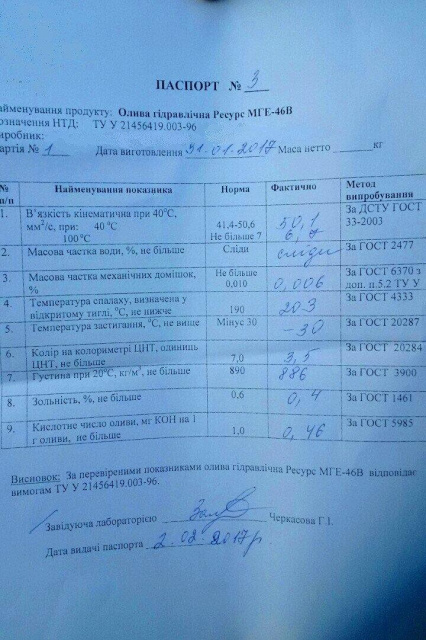 ПАСПОРТ № 3
айменування продукту: Олива гідравлічна Ресурс МГЕ-46В
означення НТД: ТУ У 21456419.003-96
иробник:
артія № 1 Дата виготовлення 31.01.2017 Маса нетто ______ кг
№ п/п Найменування показника Норма Фактично Метод випробування
1. В'язкість кінематична при 40°С, За ДСТУ ГОСТ
мм²/с, при: 40 °С 41,4-50,6 50,1 33-2003
100 °С Не більше 7 6,7
2. Масова частка води, %, не більше Сліди сліди За ГОСТ 2477
3. Масова частка механічних домішок, Не більше За ГОСТ 6370 з
% 0,010 0,006 доп. п.5.2 ТУ У
4. Температура спалаху, визначена у За ГОСТ 4333
відкритому тиглі, °С, не нижче 190 203
5. Температура застигання, °С, не вище Мінус 30 -30 За ГОСТ 20287
6. Колір на колориметрі ЦНТ, одиниць За ГОСТ 20284
ЦНТ, не більше 7,0 3,5
7. Густина при 20°С, кг/м³, не більше 890 886 За ГОСТ 3900
8. Зольність, %, не більше 0,6 0,4 За ГОСТ 1461
9. Кислотне число оливи, мг КОН на 1 За ГОСТ 5985
г оливи, не більше 1,0 0,46
Висновок: За перевіреними показниками олива гідравлічна Ресурс МГЕ-46В відповідає
вимогам ТУ У 21456419.003-96.
Завідуюча лабораторією Черкасова Г.І.
Дата видачі паспорта 2.02.2017р.